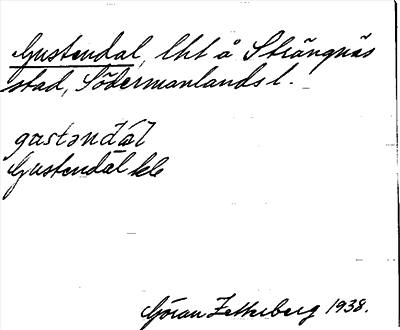 Gustendal, lht å Strängnäs
stad, Södermanlands l.
gustəndál
Gustendal kle
Göran Zetterberg 1938.